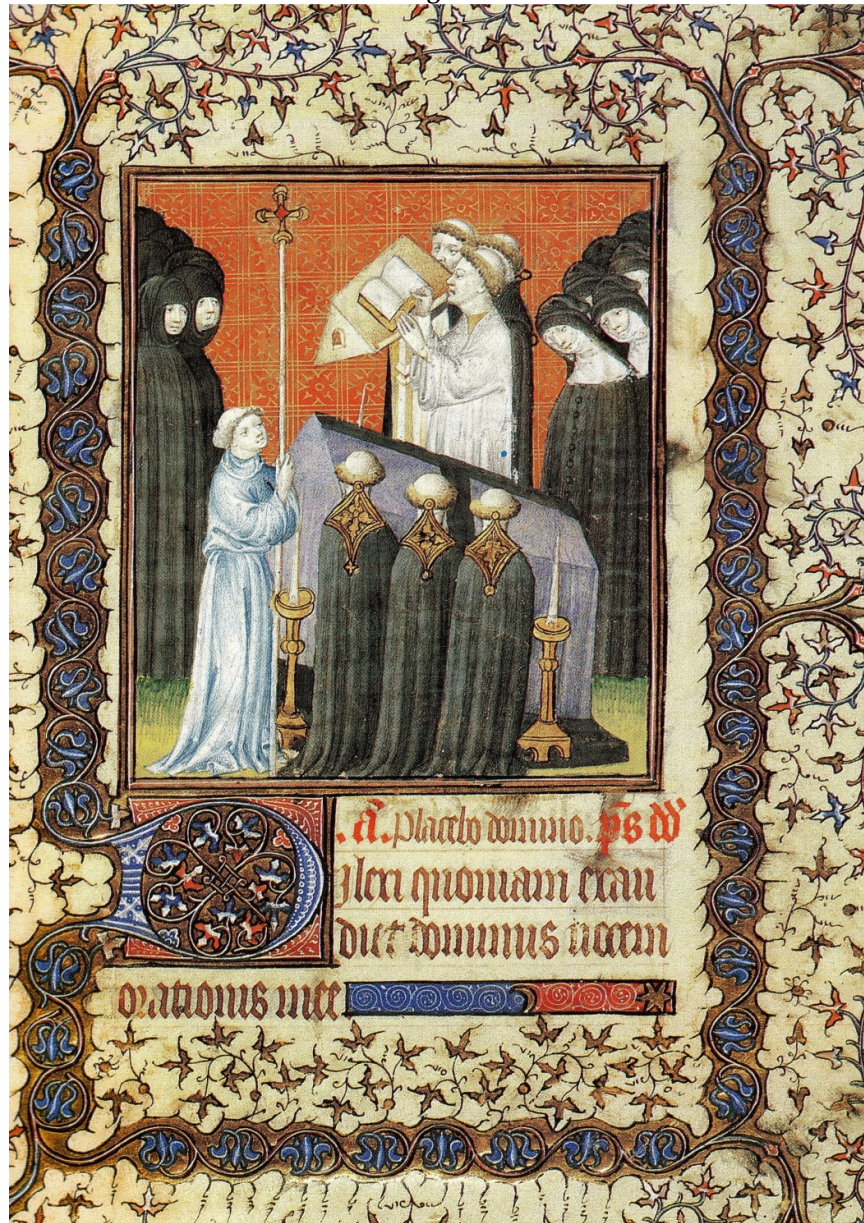 . a̅. Placebo domino. p̅s dd'
Dilexi quoniam exau
diet dominus vocem
orationis mee